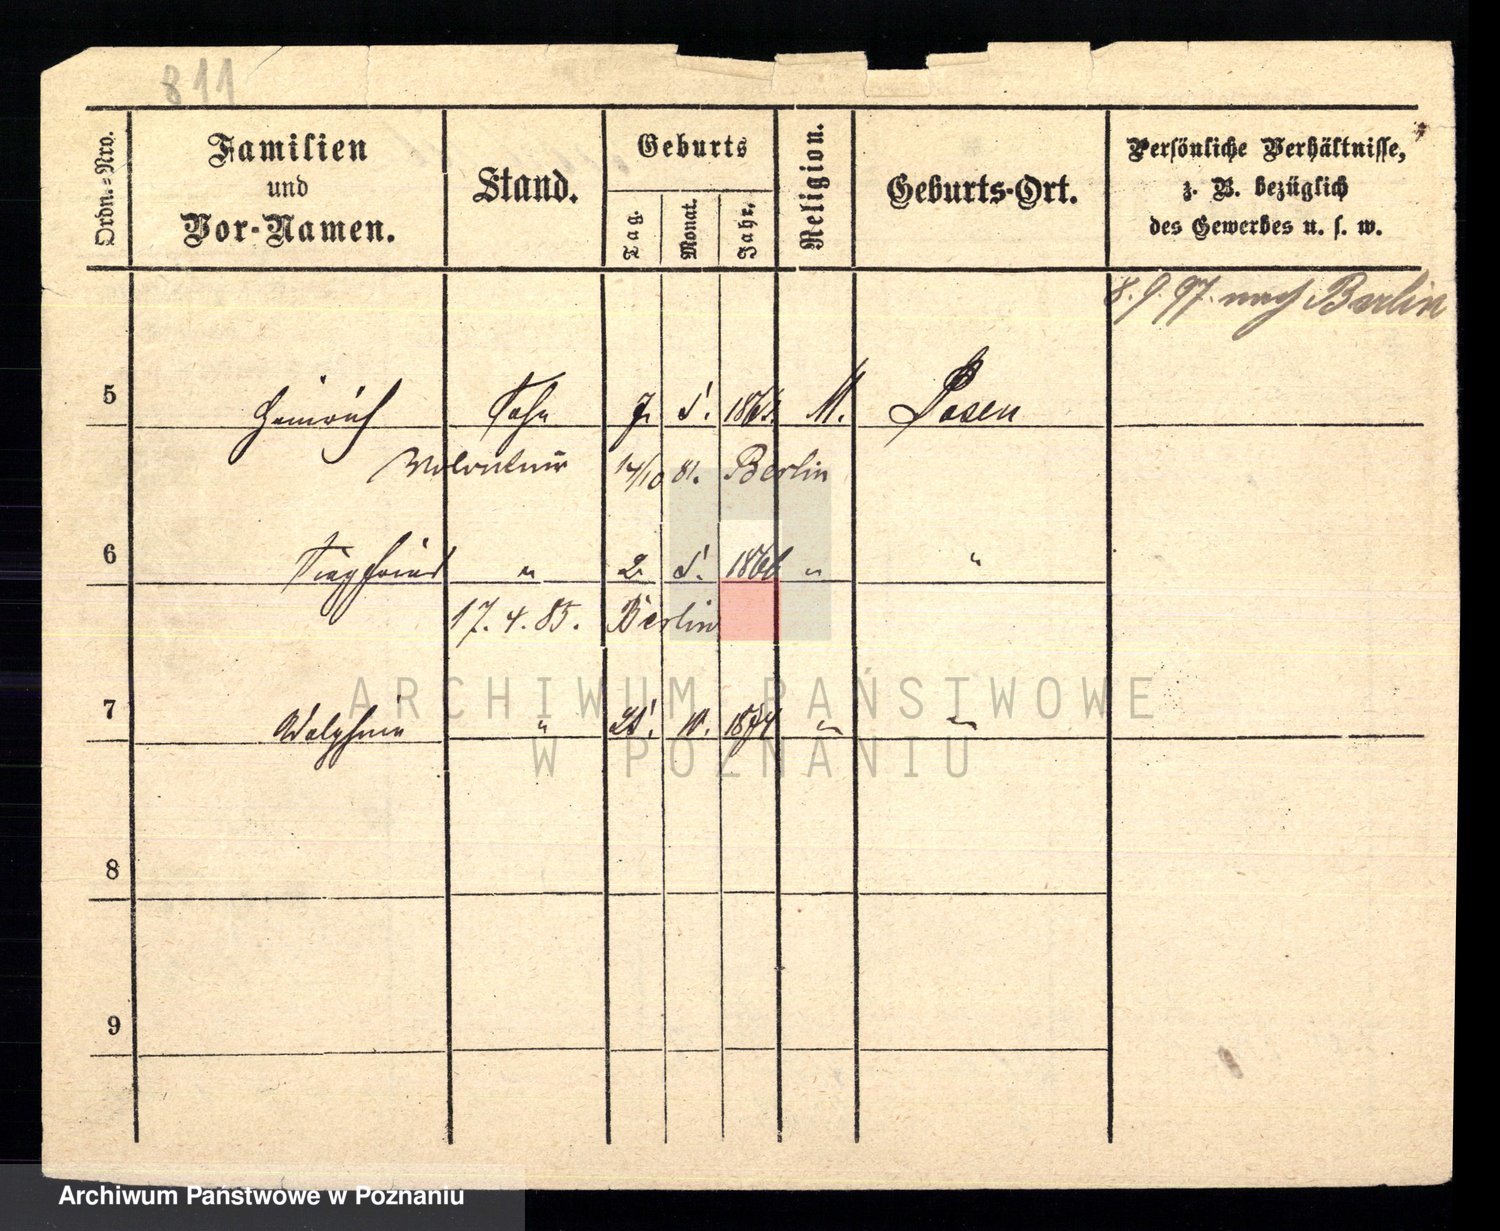 811
Ordn.-Nro.
Familien
und
Vor-Namen.
Stand.
Geburts
Tag.
Monat.
Jahr.
Religion.
Geburts-Ort.
Persönliche Verhältnisse,
z. B. bezüglich
des Gewerbes u. s. w.
8. 9. 97. nach Berlin
5 Heinrich Sohn 7. M. Posen
Volontair 14/10 81. Berlin
6 Siegfried " 2. 1866 " "
17. 4. 85. Berlin
7 " 10. 1874 " "
8
9
ARCHIWUM PAŃSTWOWE
W POZNANIU
Archiwum Państwowe w Poznaniu